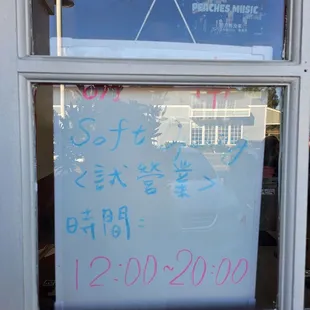 PEACHES MUSIC
Soft
〈試營業〉
時間:
12:00~20:00